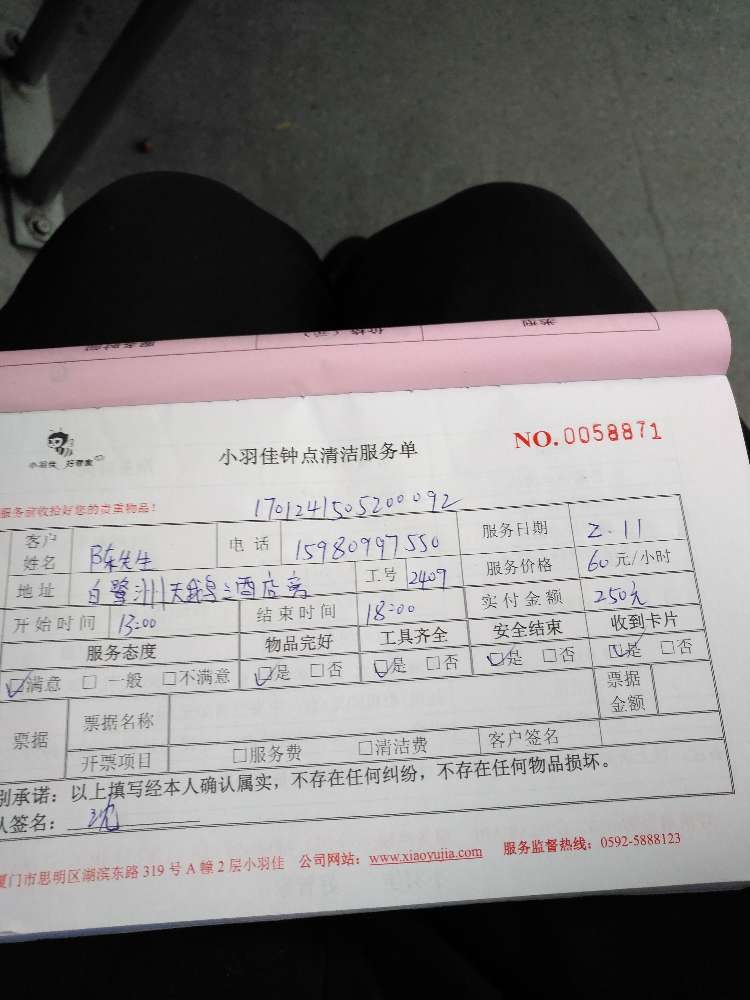 类别
价格（元）
小羽佳 好管家
小羽佳钟点清洁服务单
NO.0058871
服务前收拾好您的贵重物品！
1701241505200092
客户姓名 陈先生 电话 15980997550 服务日期 2.11
地址 白鹭洲天鹅之酒店离 工号 2409 服务价格 60元/小时
开始时间 13:00 结束时间 18:00 实付金额 250元
服务态度 物品完好 工具齐全 安全结束 收到卡片
☑满意 □一般 □不满意 ☑是 □否 ☑是 □否 ☑是 □否 ☑是 □否
票据 票据名称 票据金额
开票项目 □服务费 □清洁费 客户签名
别承诺：以上填写经本人确认属实，不存在任何纠纷，不存在任何物品损坏。
人签名：
厦门市思明区湖滨东路 319 号 A 幢 2 层小羽佳 公司网站：www.xiaoyujia.com 服务监督热线：0592-5888123